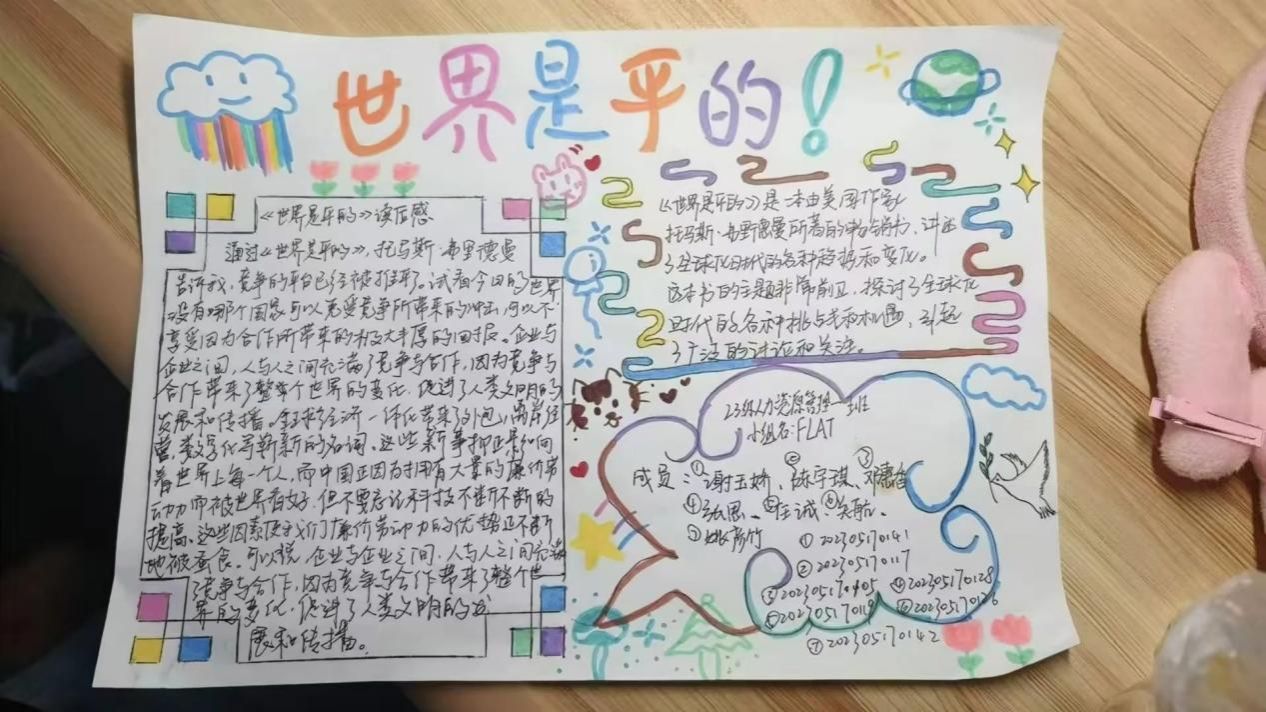 世界是平的！
《世界是平的》读后感
通过《世界是平的》，托马斯·弗里德曼
告诉我，竞争的平台已经被推平了。试看今日的世界
没有哪个国家可以免受竞争所带来的冲击，可以不
享受因为合作所带来的极大丰厚的回报。企业与
企业之间，人与人之间充满了竞争与合作，因为竞争与
合作带来了整个世界的变化，促进了人类文明的
发展和传播。全球经济一体化带来了外包，离岸经
营，数字化等崭新的名词。这些新事物正影响
着世界上每一个人，而中国正因为拥有大量的廉价劳
动力而被世界看好，但不要忘记科技不断不断的
提高、这些因素使我们廉价劳动力的优势正不断
地被蚕食。可以说，企业与企业之间，人与人之间充满
了竞争与合作，因为竞争与合作带来了整个世
界的变化，促进了人类文明的发
展和传播。
《世界是平的》是一本由美国作家
托马斯·弗里德曼所著的畅销书，讲述
了全球化时代的各种趋势和变化。
这本书的主题非常前卫，探讨了全球化
时代的各种挑战和机遇，引起
了广泛的讨论和关注。
23级人力资源管理一班
小组名：FLAT
成员：①谢玉娇、②陈宇琪、③邓惠
④ 思、⑤ 诚、⑥吴航、
⑦姚彦竹
① 202305170141
② 202305170117
③ 20230517 ④ 202305170128
⑤ 20230517 ⑥ 20230517
⑦ 20230517 0142